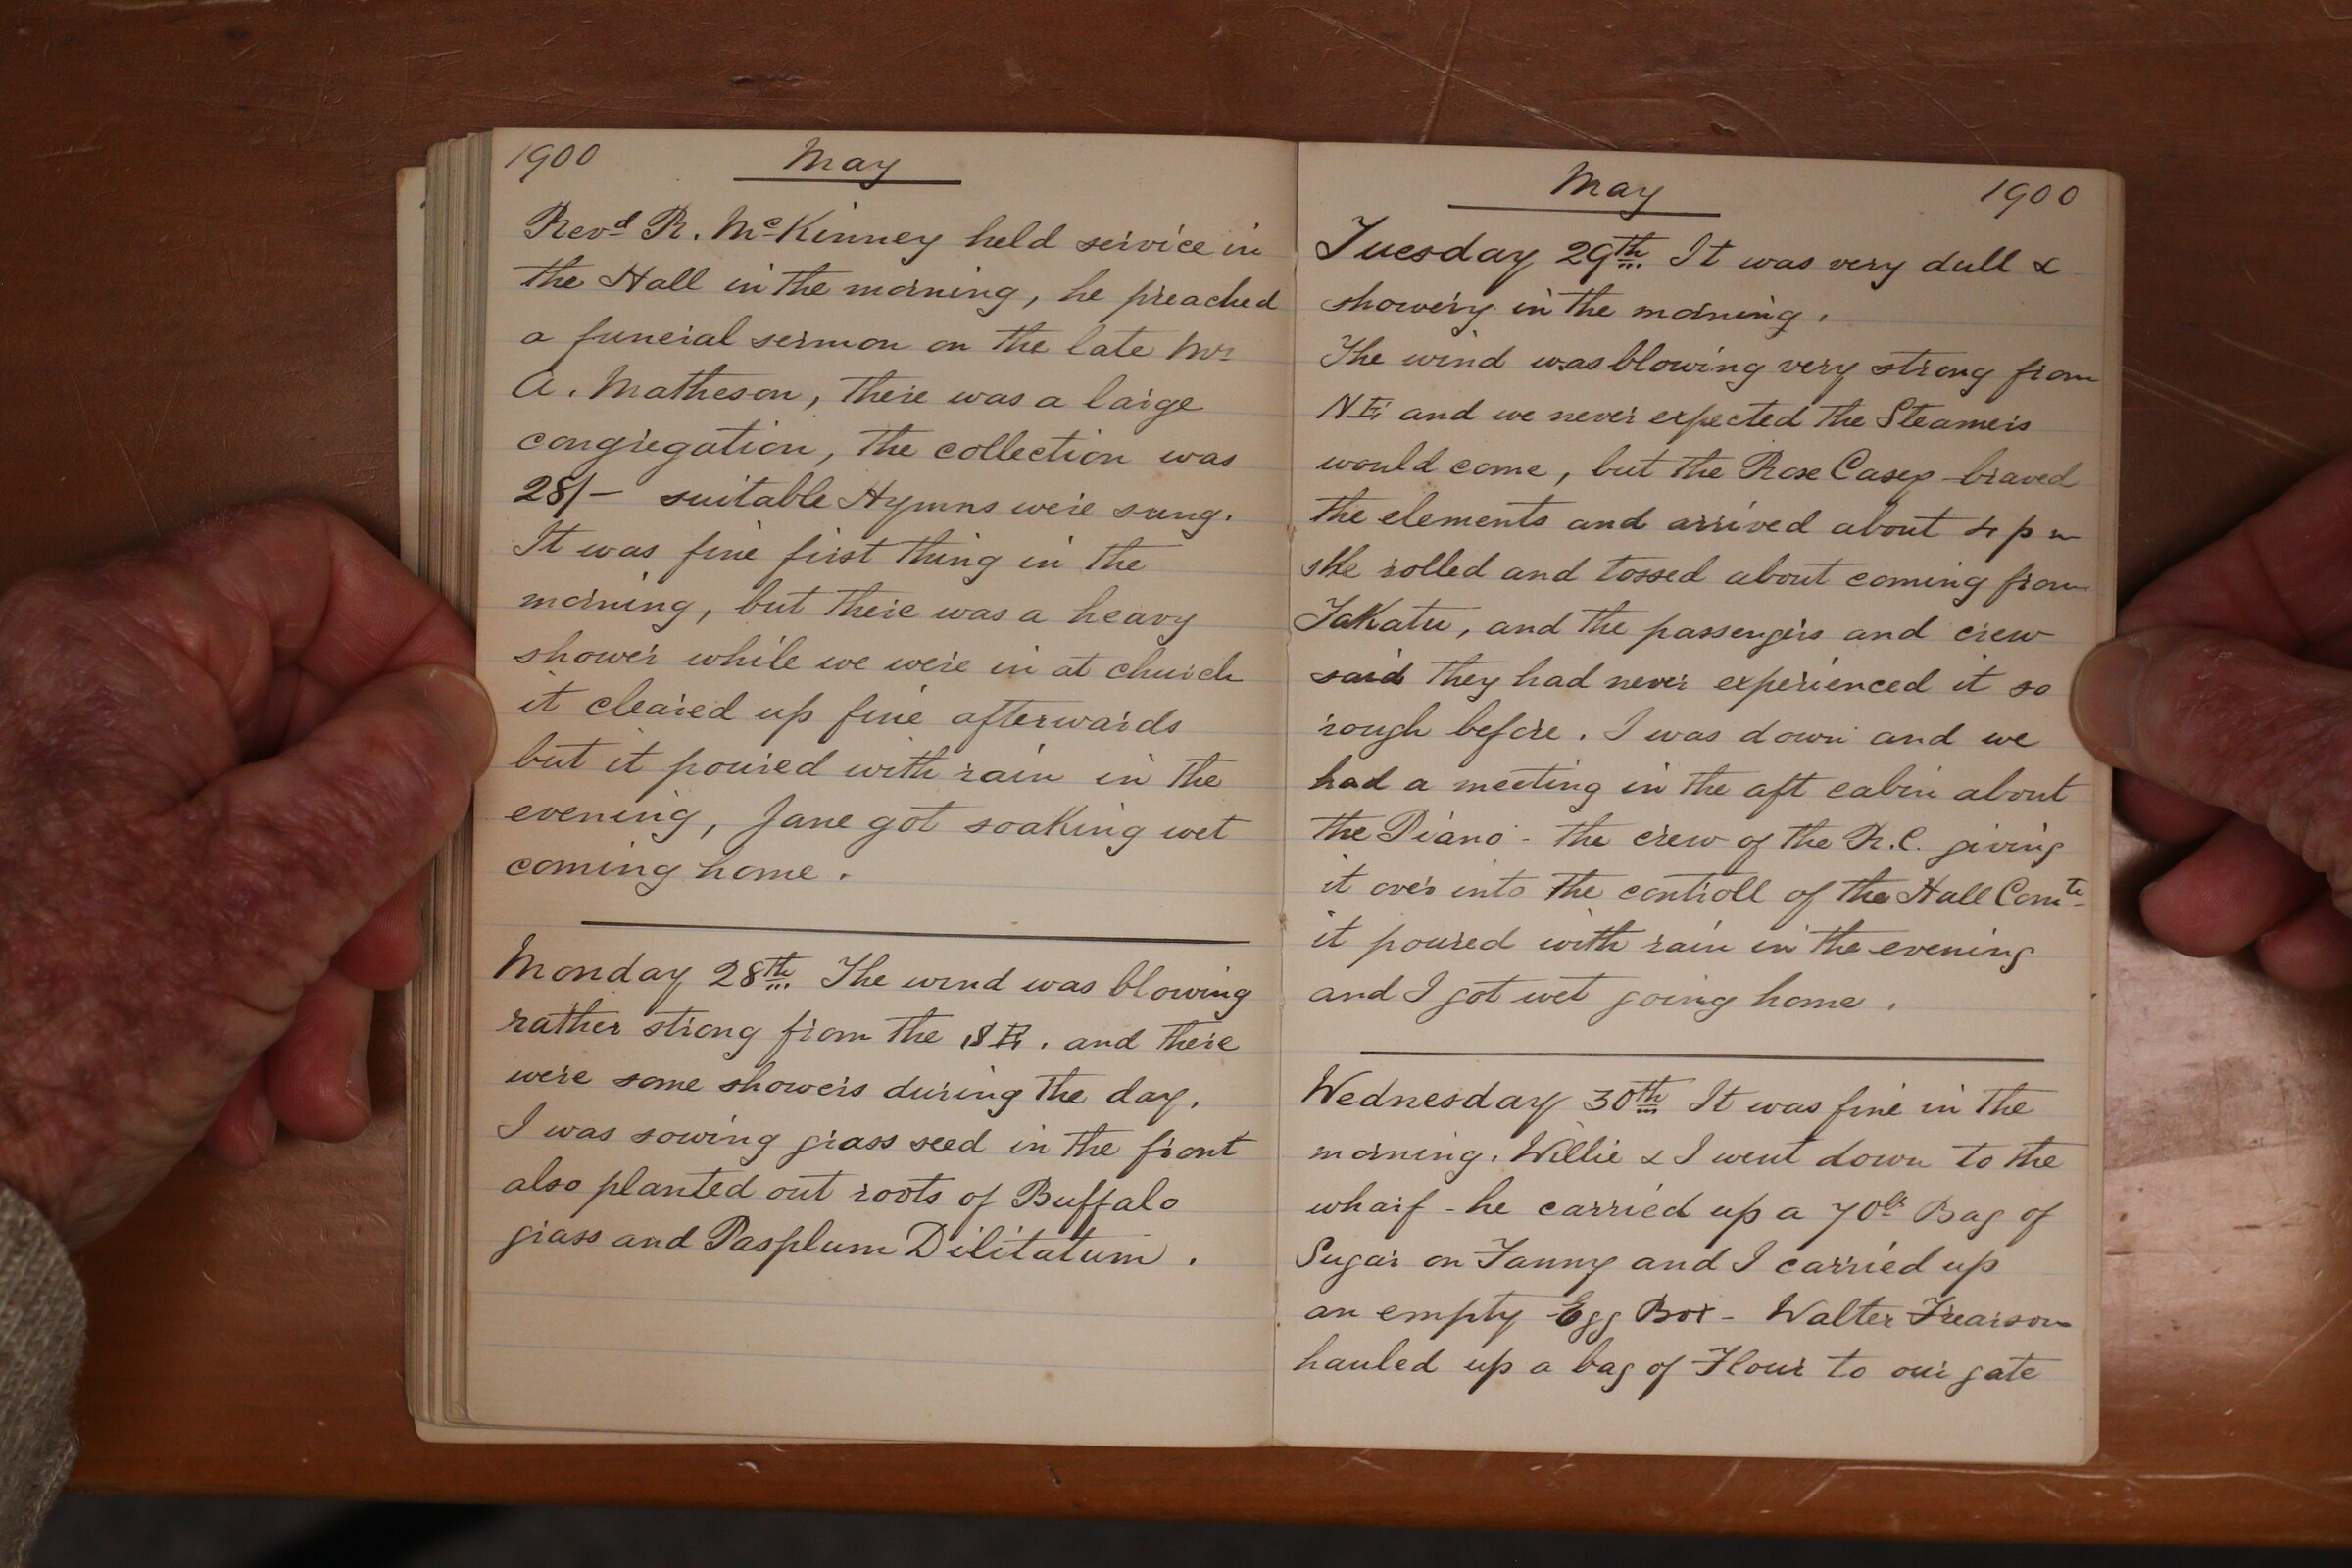 1900 May
Revd R. McKinney held service in
the Hall in the morning, he preached
a funeral sermon on the late Mr
A. Matheson, there was a large
congregation, the collection was
28/- suitable Hymns were sung.
It was fine first thing in the
morning, but there was a heavy
shower while we were in at church
it cleared up fine afterwards
but it poured with rain in the
evening, Jane got soaking wet
coming home.
Monday 28th. The wind was blowing
rather strong from the SE. and there
were some showers during the day.
I was sowing grass seed in the front
also planted out roots of Buffalo
grass and Pasplum Dilitatum.
May 1900
Tuesday 29th. It was very dull &
showery in the morning.
The wind was blowing very strong from
NE and we never expected the Steamers
would come, but the Rose Casey braved
the elements and arrived about 4 pm
she rolled and tossed about coming from
TaKatu, and the passengers and crew
said they had never experienced it so
rough before. I was down and we
had a meeting in the aft cabin about
the Piano - the crew of the R.C. giving
it over into the controll of the Hall Comte.
it poured with rain in the evening
and I got wet going home.
Wednesday 30th It was fine in the
morning. Willie & I went down to the
wharf - he carried up a 70lb Bag of
Sugar on Fanny and I carried up
an empty Egg Box - Walter Frearson
hauled up a bag of Flour to our gate